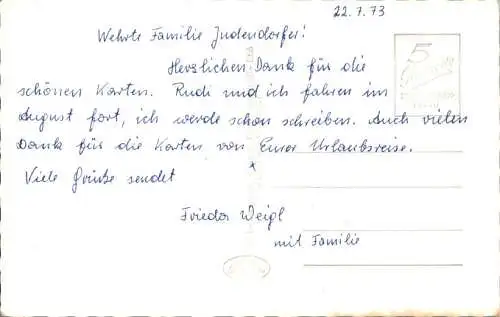 22.7.73
Wehrte Familie Judendorfer!
Herzlichen Dank für die
schönen Karten. Rudi und ich fahren im
August fort, ich werde schon schreiben. Auch vielen
Dank für die Karten von Eurer Urlaubsreise.
Viele Grüße sendet
Frieda Weigl
mit Familie
5